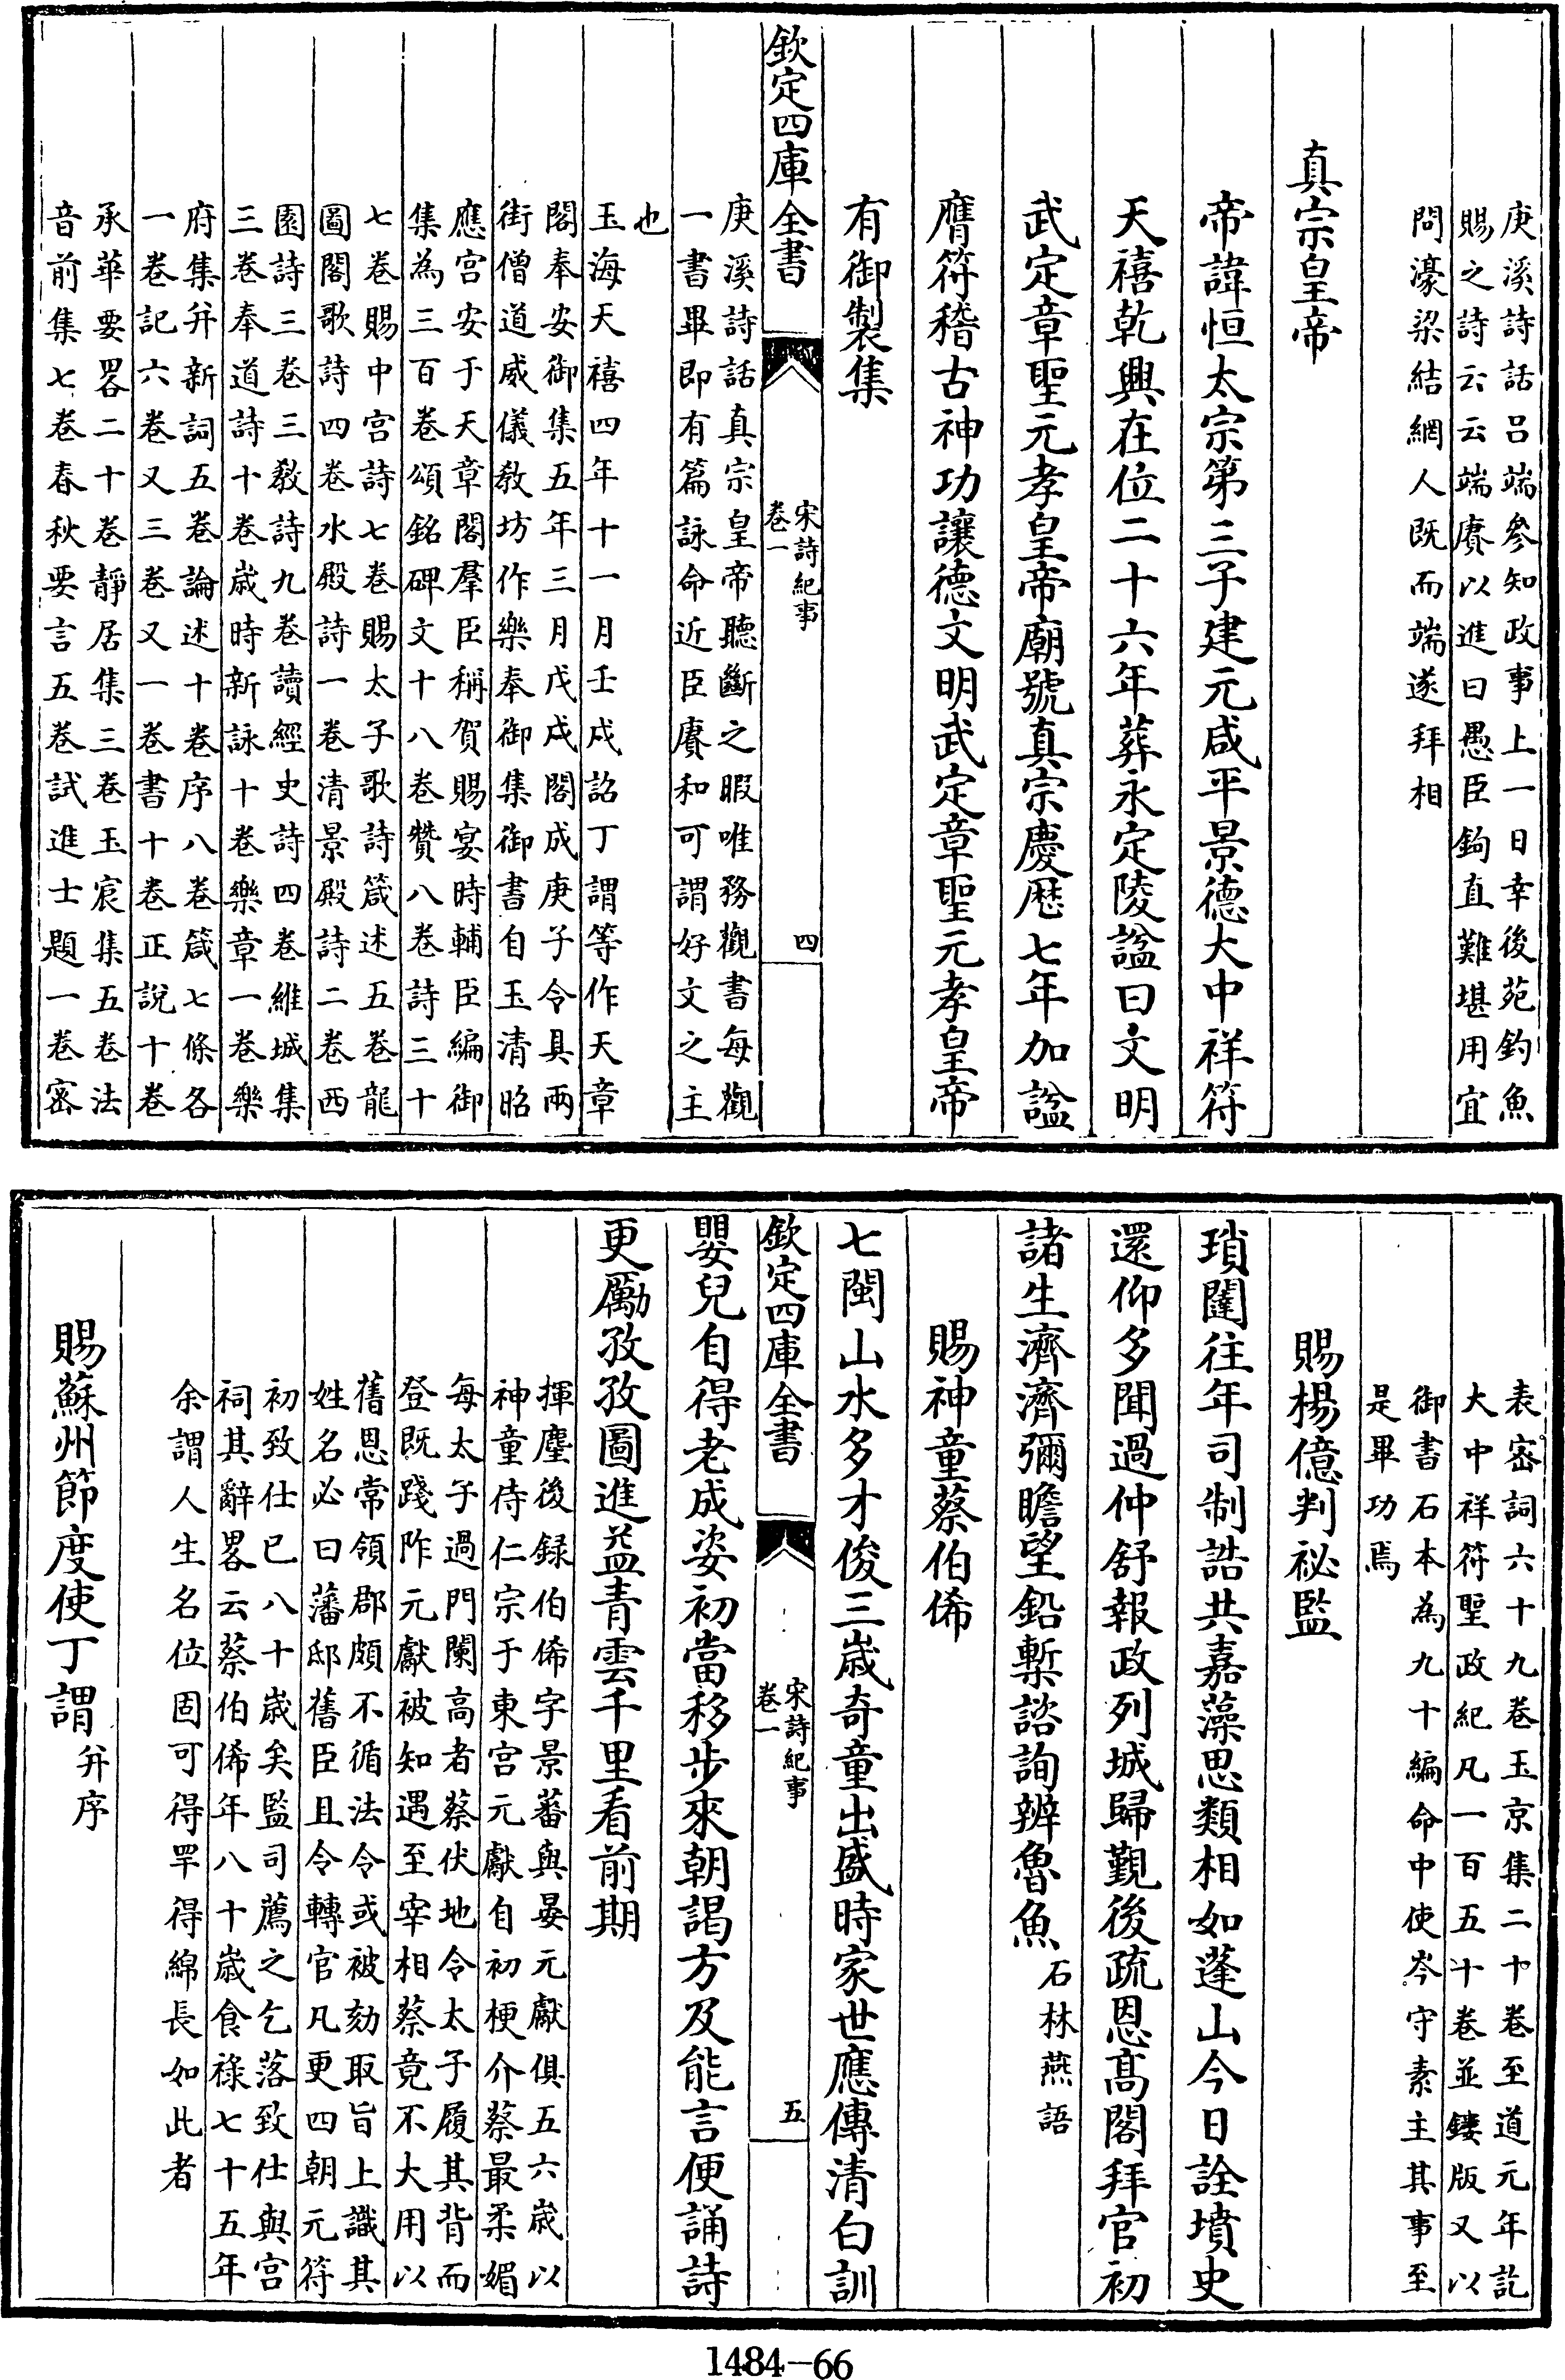 庚溪詩話吕端參知政事上一日幸後苑釣魚
賜之詩云云端賡以進曰愚臣鉤直難堪用宜
問濠梁結網人既而端遂拜相
真宗皇帝
帝諱恒太宗第三子建元咸平景德大中祥符
天禧乾興在位二十六年葬永定陵諡曰文明
武定章聖元孝皇帝廟號真宗慶厯七年加諡
膺符稽古神功讓德文明武定章聖元孝皇帝
有御製集
欽定四庫全書
宋詩紀事
卷一
四
庚溪詩話真宗皇帝聽斷之暇唯務觀書每觀
一書畢即有篇詠命近臣賡和可謂好文之主
也
玉海天禧四年十一月壬戌詔丁謂等作天章
閣奉安御集五年三月戊戌閣成庚子令具兩
街僧道威儀教坊作樂奉御集御書自玉清昭
應宫安于天章閣羣臣稱賀賜宴時輔臣編御
集為三百卷頌銘碑文十八卷贊八卷詩三十
七卷賜中宫詩七卷賜太子歌詩箴述五卷龍
圖閣歌詩四卷水殿詩一卷清景殿詩二卷西
園詩三卷三教詩九卷讀經史詩四卷維城集
三卷奉道詩十卷嵗時新詠十卷樂章一卷樂
府集并新詞五卷論述十卷序八卷箴七條各
一卷記六卷又三卷又一卷書十卷正說十卷
承華要畧二十卷靜居集三卷玉宸集五卷法
音前集七卷春秋要言五卷試進士題一卷宻
表宻詞六十九卷玉京集二十卷至道元年訖
大中祥符聖政紀凡一百五十卷並鏤版又以
御書石本為九十編命中使岑守素主其事至
是畢功焉
賜楊億判祕監
瑣闥往年司制誥共嘉藻思類相如蓬山今日詮墳史
還仰多聞過仲舒報政列城歸覲後疏恩髙閣拜官初
諸生濟濟彌瞻望鉛槧諮詢辨魯魚石林燕語
賜神童蔡伯俙
七閩山水多才俊三嵗奇童出盛時家世應傳清白訓
欽定四庫全書
宋詩紀事
卷一
五
嬰兒自得老成姿初當移步來朝謁方及能言便誦詩
更勵孜孜圖進益青雲千里看前期
揮塵後録伯俙字景蕃與晏元獻俱五六嵗以
神童侍仁宗于東宫元獻自初梗介蔡最柔媚
每太子過門闌高者蔡伏地令太子履其背而
登既踐阼元獻被知遇至宰相蔡竟不大用以
舊恩常領郡頗不循法令或被劾取旨上識其
姓名必曰藩邸舊臣且令轉官凡更四朝元符
初致仕已八十嵗矣監司薦之乞落致仕與宫
祠其辭畧云蔡伯俙年八十嵗食祿七十五年
余謂人生名位固可得罕得綿長如此者
賜蘇州節度使丁謂并序
1484—66